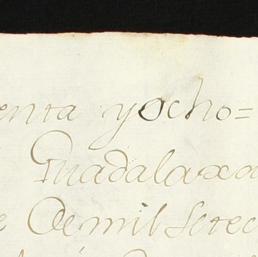 enta yocho=
Guadalaxa
e Demil Setec